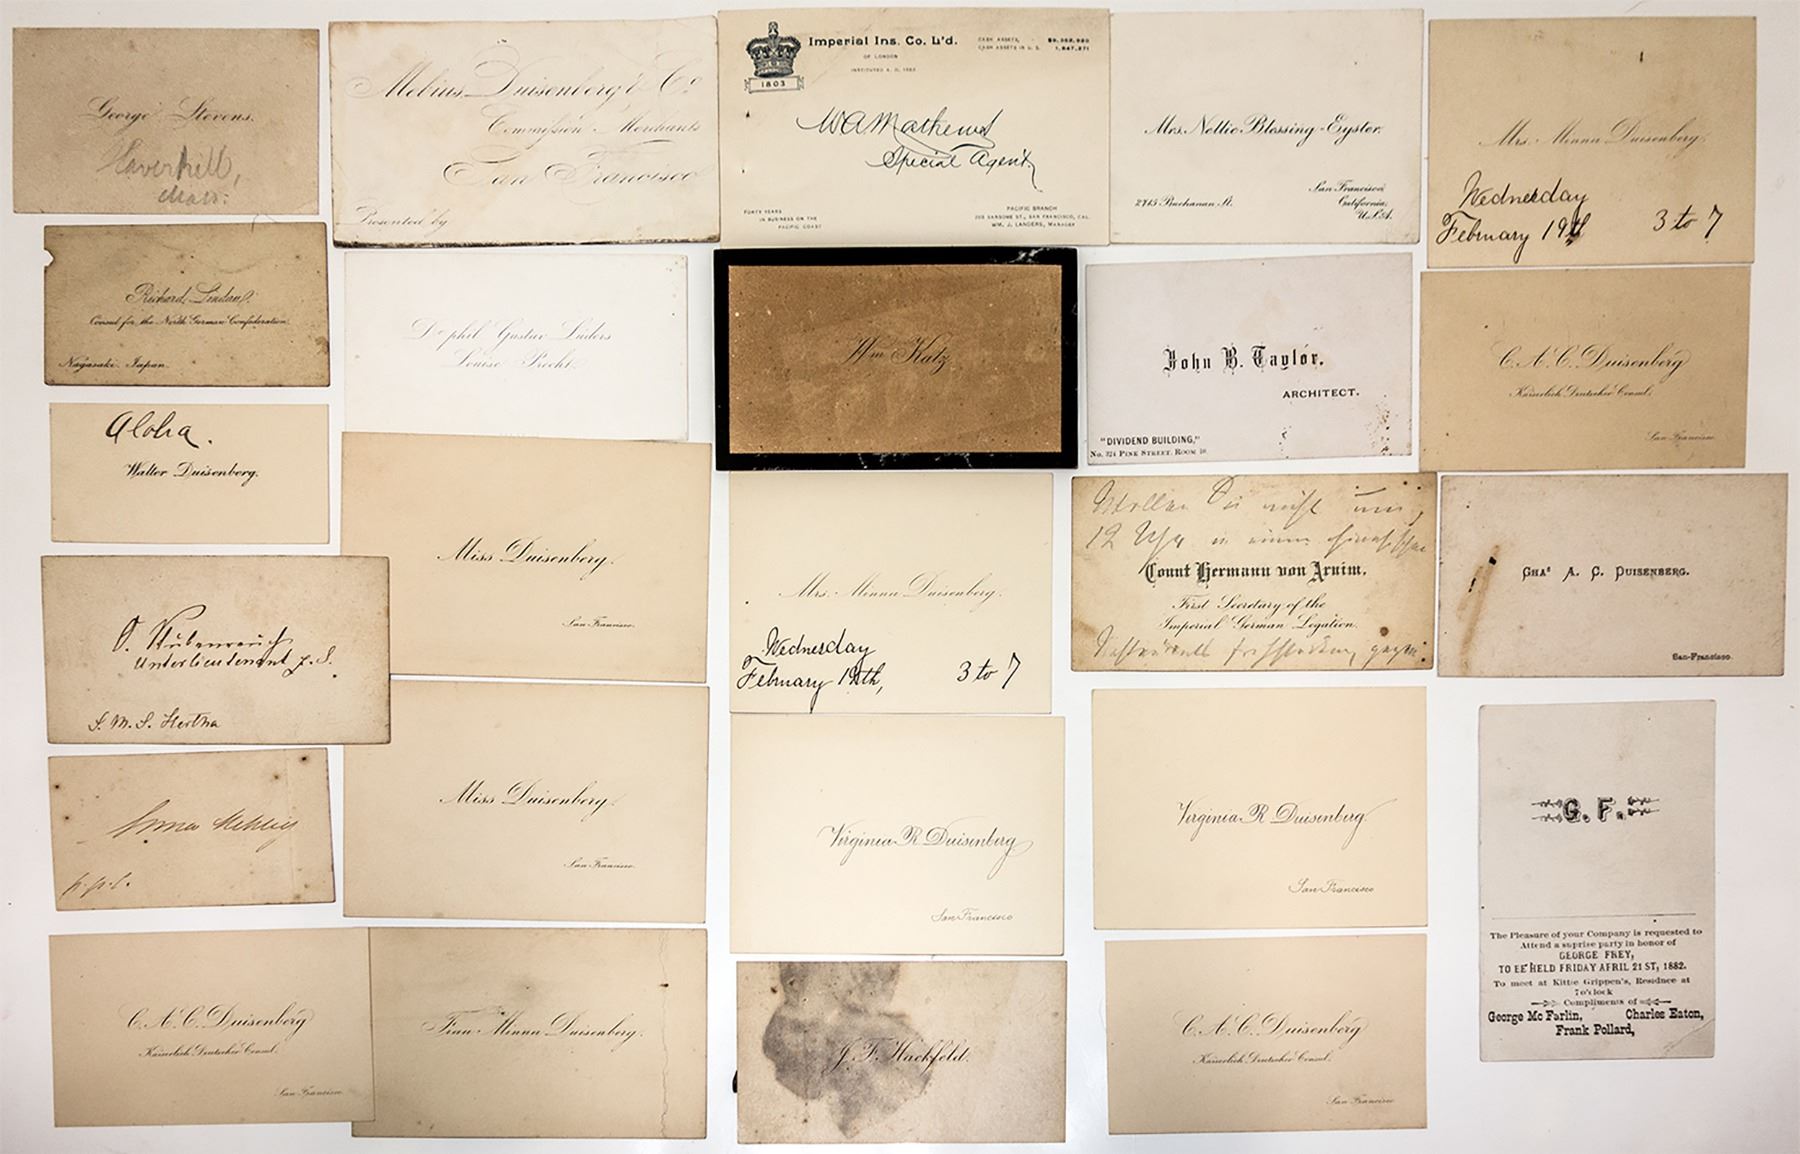 George Stevens.
Haverhill,
Mass:
Mebius, Duisenberg & Co.
Commission Merchants
San Francisco
Presented by
Imperial Ins. Co. L't'd.
OF LONDON
INSTITUTED A. D. 1803.
1803
CASH ASSETS,
CASH ASSETS IN U. S.
WA Mathews
Special Agent.
FORTY YEARS
IN BUSINESS ON THE
PACIFIC COAST
PACIFIC BRANCH
205 SANSOME ST., SAN FRANCISCO, CAL.
WM. J. LANDERS, MANAGER
Mrs. Nettie Blessing-Eyster.
2715 Buchanan St.
San Francisco,
California,
U.S.A.
Mrs. Minna Duisenberg.
Wednesday
February 19th 3 to 7
Richard Lindau.
Consul for the North German Confederation.
Nagasaki. Japan.
Dr phil Gustav Lüders
Louise Precht
Wm Katz
John B. Taylor.
ARCHITECT.
"DIVIDEND BUILDING,"
No. 324 PINE STREET. ROOM
C. A. C. Duisenberg
Kaiserlich Deutscher Consul.
San Francisco
Aloha.
Walter Duisenberg.
Miss Duisenberg.
San Francisco.
Mrs. Minna Duisenberg.
Wednesday
February 19th, 3 to 7
Wollen Sie nicht um
12 Uhr in einem
Count Hermann von Arnim.
First Secretary of the
Imperial German Legation.
Chas A. C. Duisenberg.
San-Francisco.
Unterlieutenant z. S.
S. M. S. Hertha
Miss Duisenberg.
San Francisco.
Virginia R Duisenberg
San Francisco
Virginia R Duisenberg
San Francisco
G. F.
The Pleasure of your Company is requested to
Attend a suprise party in honor of
GEORGE FREY,
TO BE HELD FRIDAY APRIL 21ST, 1882.
To meet at Kittie Grippen's, Residnce at
7 o'clock
Compliments of
George Mc Farlin, Charles Eaton,
Frank Pollard,
p.p.c.
C. A. C. Duisenberg
Kaiserlich Deutscher Consul.
San Francisco
Frau Minna Duisenberg.
J. F. Hackfeld.
C. A. C. Duisenberg
Kaiserlich Deutscher Consul.
San Francisco